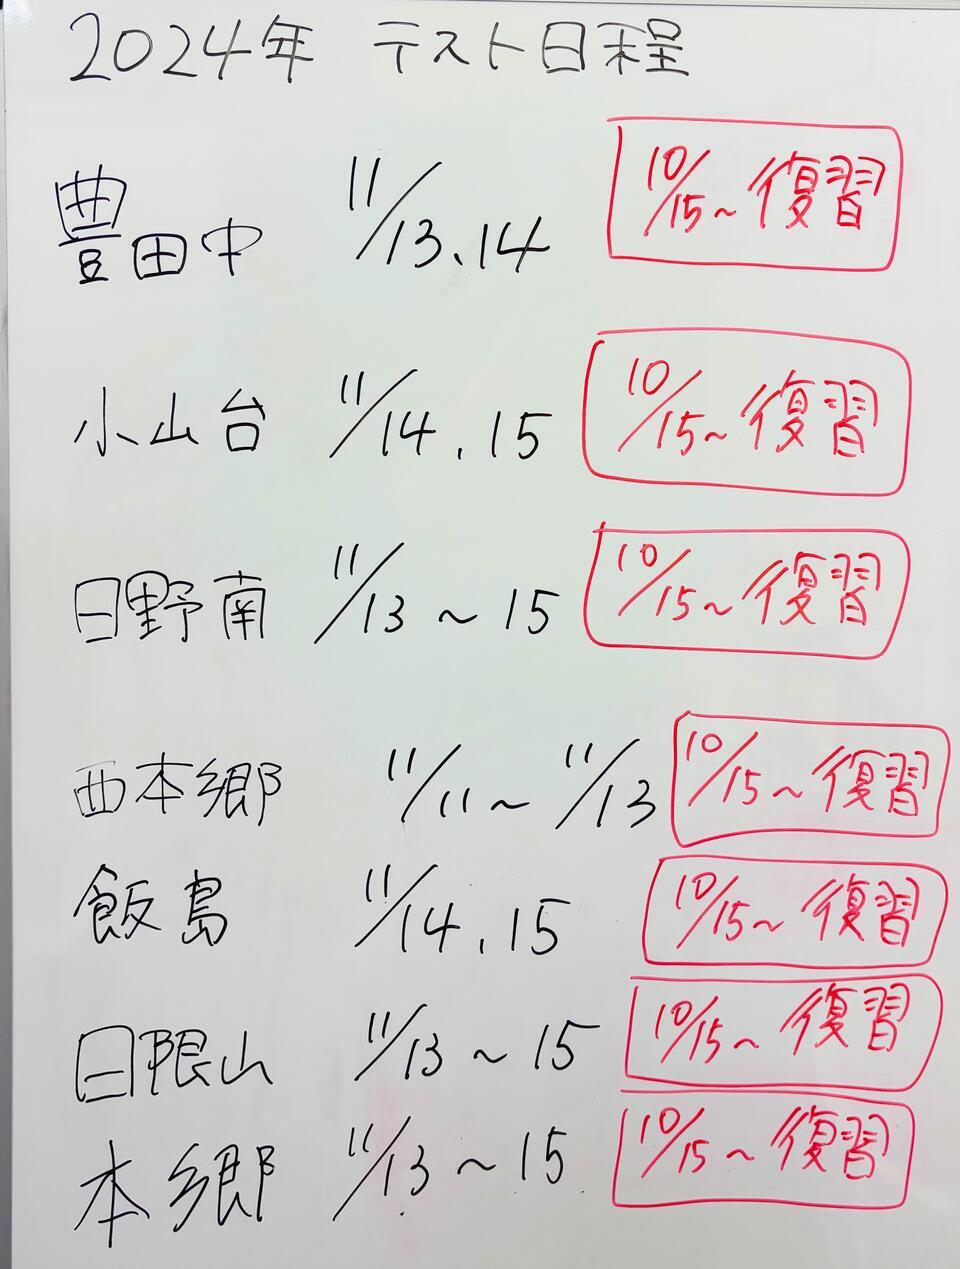 2024年 テスト日程
豊田中 11/13、14 10/15~復習
小山台 11/14、15 10/15~復習
日野南 11/13~15 10/15~復習
西本郷 11/11~11/13 10/15~復習
飯島 11/14、15 10/15~復習
日限山 11/13~15 10/15~復習
本郷 11/13~15 10/15~復習